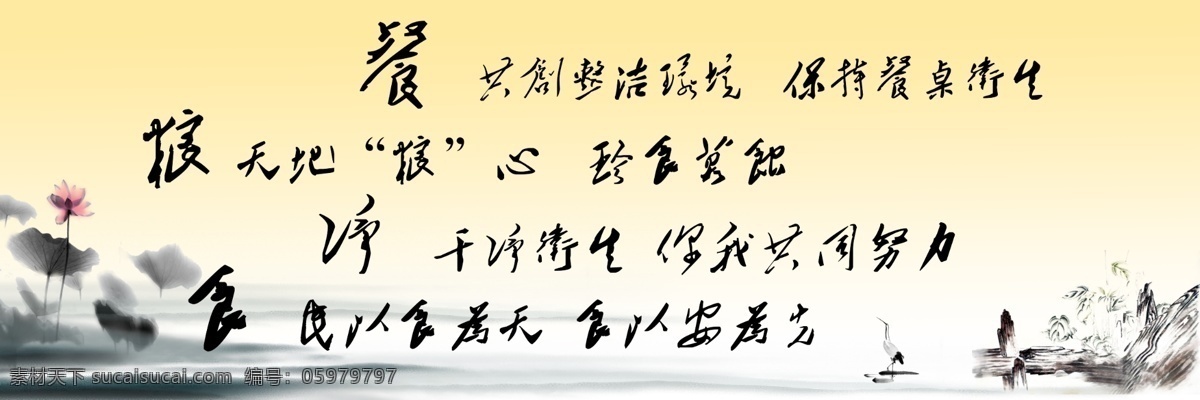 餐 共創整洁環境 保持餐桌衛生
粮 天地“粮”心 珍食莫蝕
净 干净衛生 你我共同努力
食 民以食為天 食以安為先
素材天下 sucaisucai.com 编号：05979797